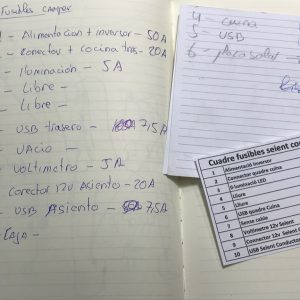 Fusibles camper
- Alimentacion + inversor - 50A
- Conector + cocina tras - 20A
- Iluminación - 5A
- Libre -
- Libre -
- USB trasero - 7,5A
- Vacio -
- Voltimetro - 5A
conector 12v Asiento - 20A
- USB Asiento - 7,5A
CAJA -
4 - cuina
5 - USB
6 - placa solar -
Cuadre fusibles seient co
1 Alimentació inversor
2 Connector quadre cuina
3 Il·luminació LED
4 Lliure
5 Lliure
6 USB quadre cuina
7 Sense cable
8 Voltímetre 12v Seient
9 Connector 12v Seient
10 USB Seient Conductor